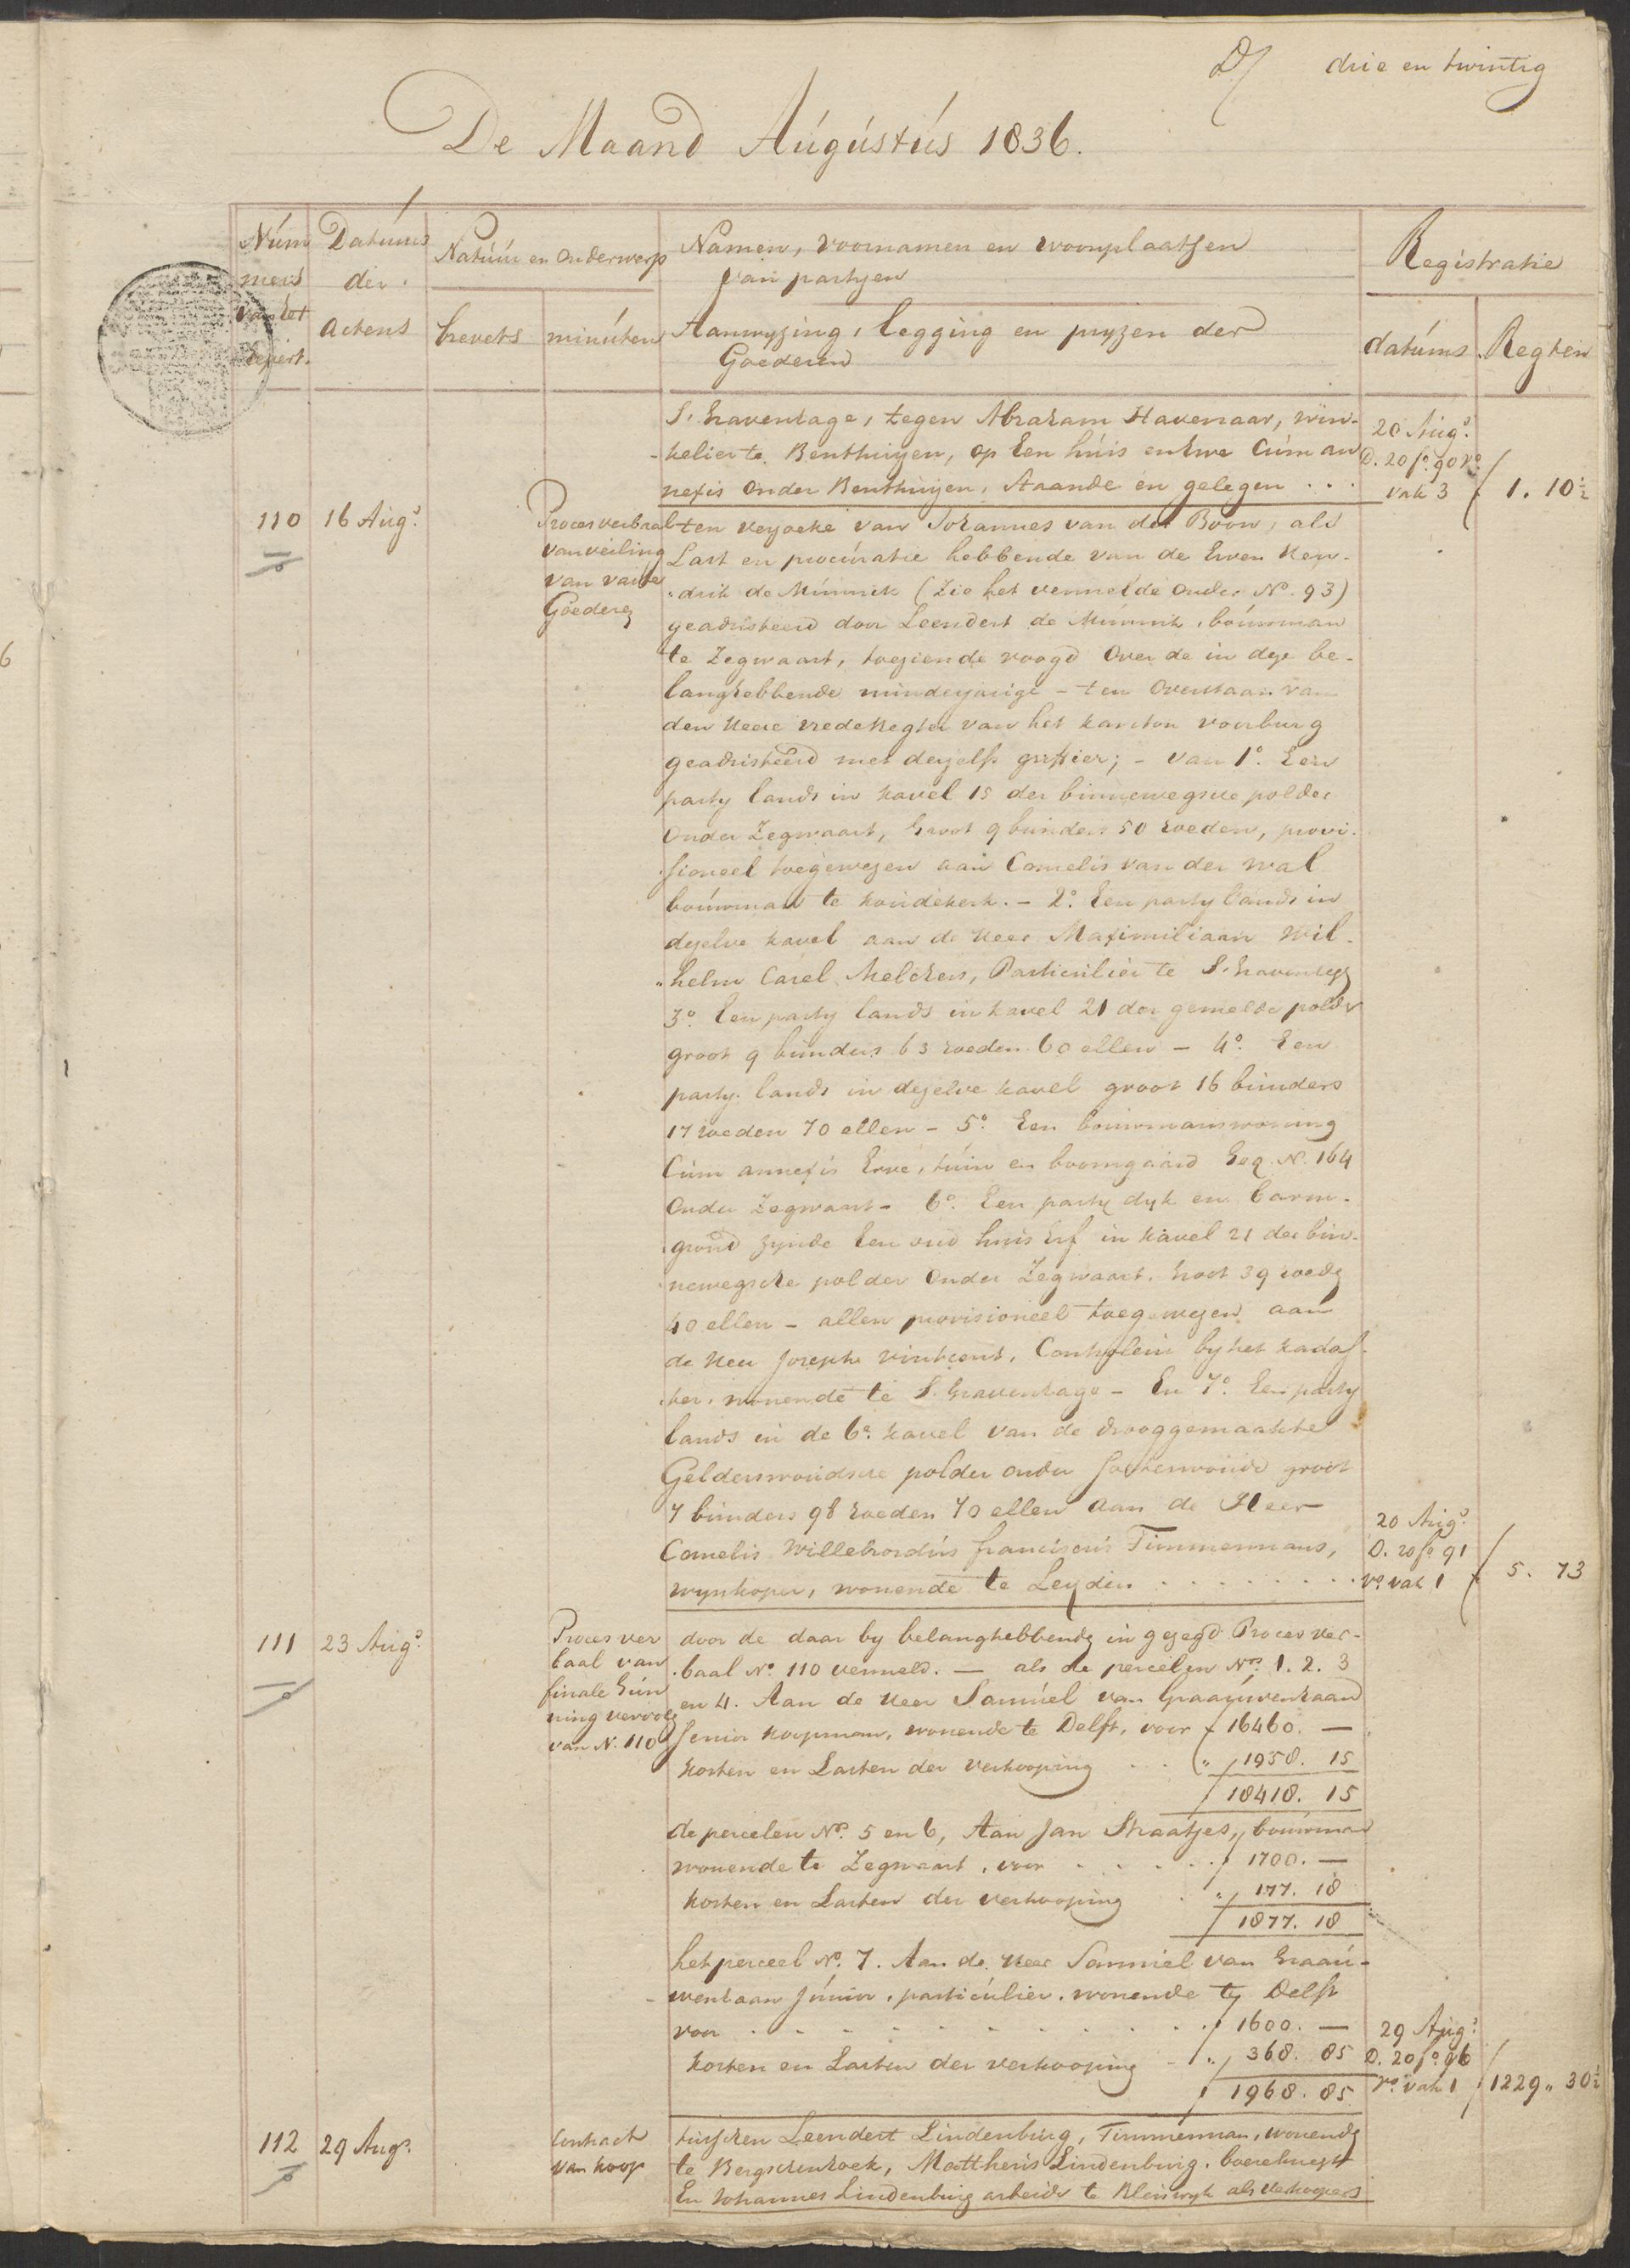 drie en twintig
De Maand Augustus 1836.
Num
mers
van het
repert.
Datums
der
actens
Natuur en onderwerp
brevets
minuten
Namen, voornamen en woonplaatsen
van partyen
Aanwyzing, legging en pryzen der
Goederen
Registratie
datums
Regten
S'Gravenhage, tegen Abraham Havenaar, win-
kelier te Benthuizen, op Een huis en Erve Cum an
nexis onder Benthuizen, staande en gelegen . . .
20 Augs.
D. 20 fo. 90 vo.
vak 3
1. 10½
110
16 Augs.
Proces verbaal
van veiling
van vaste
Goederen
ten verzoeke van Johannes van der Boon, als
Last en procuratie hebbende van de Erven Hen-
drik de Mimnik (Zie het vermelde onder No. 93)
geadsisteerd door Leendert de Mimnik, bouwman
te Zegwaart, toeziende voogd over de in deze be-
langhebbende minderjarige - ten overstaan van
den Heere vrederegter van het kanton voorburg
geadsisteerd met deszelfs griffier; - van 1o. Een
party lands in kavel 15 der binnenwegsche polder
onder Zegwaart, Groot 9 bunders 50 roeden, provi-
sioneel toegewezen aan Cornelis van der Wal
bouwman te Koudekerk. - 2o. Een party lands in
dezelve kavel aan de Heer Maximiliaan Wil-
helm Carel Melchers, Particulier te S'Gravenhage
3o. Een party lands in kavel 21 der gemelde polder
groot 9 bunders 63 roeden 60 ellen - 4o. Een
party lands in dezelve kavel groot 16 bunders
17 roeden 70 ellen - 5o. Een bouwmanswoning
Cum annexis Erve, tuin en boomgaard Geq. N. 164
onder Zegwaart - 6o. Een party dyk en barm-
grond zynde Een oud huis Erf in kavel 21 der bin-
newegsche polder onder Zegwaart. Groot 39 roeden
40 ellen - allen provisioneel toegewezen aan
de Heer Joseph Vintcent, Controleur by het kadas-
ter, wonende te S'Gravenhage - En 7o. Een party
lands in de 6e kavel van de drooggemaakte
Gelderswoudsche polder onder Soeterwoude groot
7 bunders 98 roeden 70 ellen aan de Heer
Cornelis Willebrordus franciscus Timmermans,
wynkoper, wonende te Leyden . . . . . . . .
20 Augs.
D. 20 fo 91
vo. vak 1
5. 73
111
23 Augs.
Proces ver
baal van
finale Gun
ning vervolg
van N. 110
door de daar by belanghebbende in gezegd Proces ver-
baal No. 110 vermeld. — als de percelen Nos. 1. 2. 3
en 4. Aan de Heer Samuel van Graauwenhaan
Senior Koopman, wonende te Delft, voor f 16460. —
kosten en Lasten der verkooping . . " 1958. 15
f 18418. 15
de percelen No. 5 en 6, Aan Jan Straatjes, bouwman
wonende te Zegwaart, voor . . . . . f 1700. —
kosten en Lasten der verkooping . " 177. 18
f 1877. 18
het perceel No. 7. Aan de Heer Samuel van Graau-
wenhaan Junior, particulier, wonende te Delft
voor . . . . . . . . . . f 1600. —
kosten en Lasten der verkooping - " 368. 85
f 1968. 85
29 Augs.
D. 20 fo. 96
vo. vak 1
1229 „ 30½
112
29 Augs.
Contract
van koop
tusschen Leendert Lindenburg, Timmerman, wonende
te Bergschenhoek, Mattheus Lindenburg, boereknegt
En Johannes Lindenburg arbeider te Bleiswyk als verkoopers